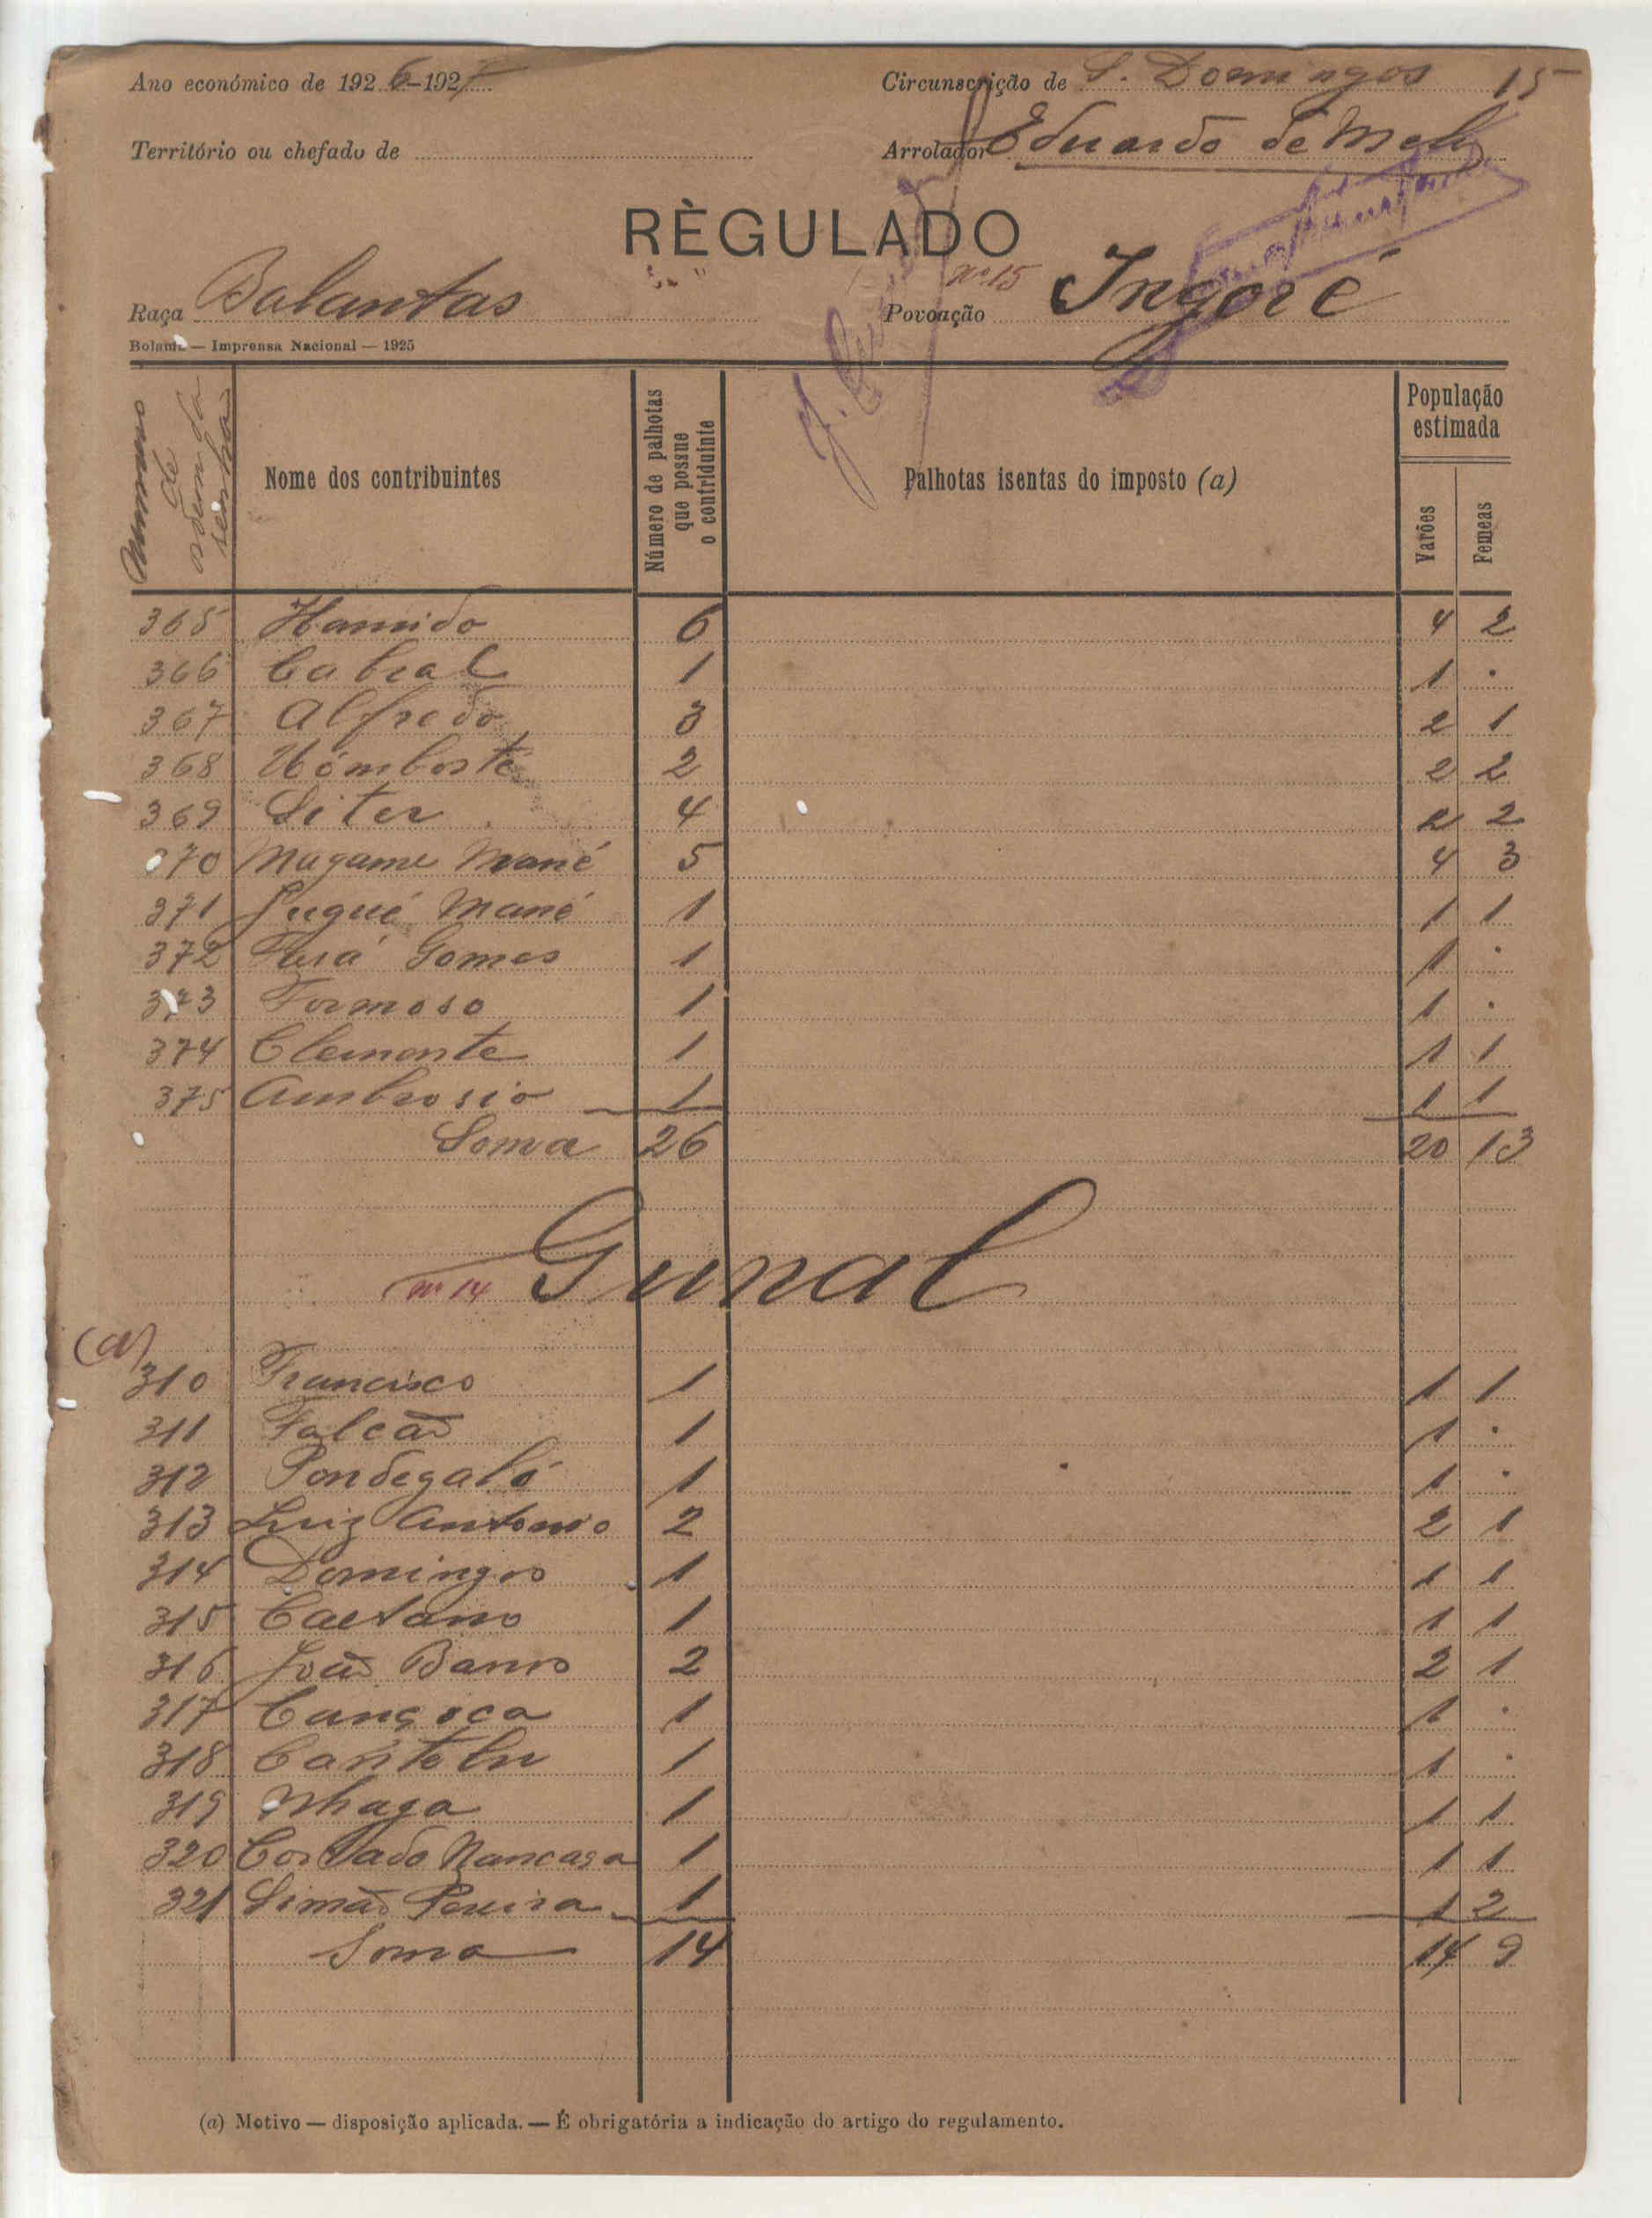 Ano económico de 1926-1927 Circunscrição de S. Domingos 15
Território ou chefado de Arrolador Eduardo de Melo
RÈGULADO
Nº 15
Raça Balantas Povoação Ingoré
Bolama — Imprensa Nacional — 1925
Numero de senha
Nome dos contribuintes
Número de palhotas que possue o contriduinte
Palhotas isentas do imposto (a)
População estimada
Varões Femeas
365 Hamido 6 4 2
366 Cabral 1 1 .
367 Alfredo 3 2 1
368 2 2 2
369 Siter 4 2 2
370 Magame Mané 5 4 3
371 Jugué Mané 1 1 1
372 Gomes 1 1 .
373 Formoso 1 1 .
374 Clemente 1 1 1
375 Ambrosio 1 1 1
Soma 26 20 13
nº 14 Gunal
(a)
310 Francisco 1 1 1
311 Falcão 1 1 .
312 Pondegaló 1 1 .
313 Luiz Antonio 2 2 1
314 Domingos 1 1 1
315 Caetano 1 1 1
316 João Barros 2 2 1
317 Cançoca 1 1 .
318 1 1 .
319 Nhaga 1 1 1
320 Nancassa 1 1 1
321 Simão Pereira 1 1 2
Soma 14 14 9
(a) Motivo — disposição aplicada. — É obrigatória a indicação do artigo do regulamento.